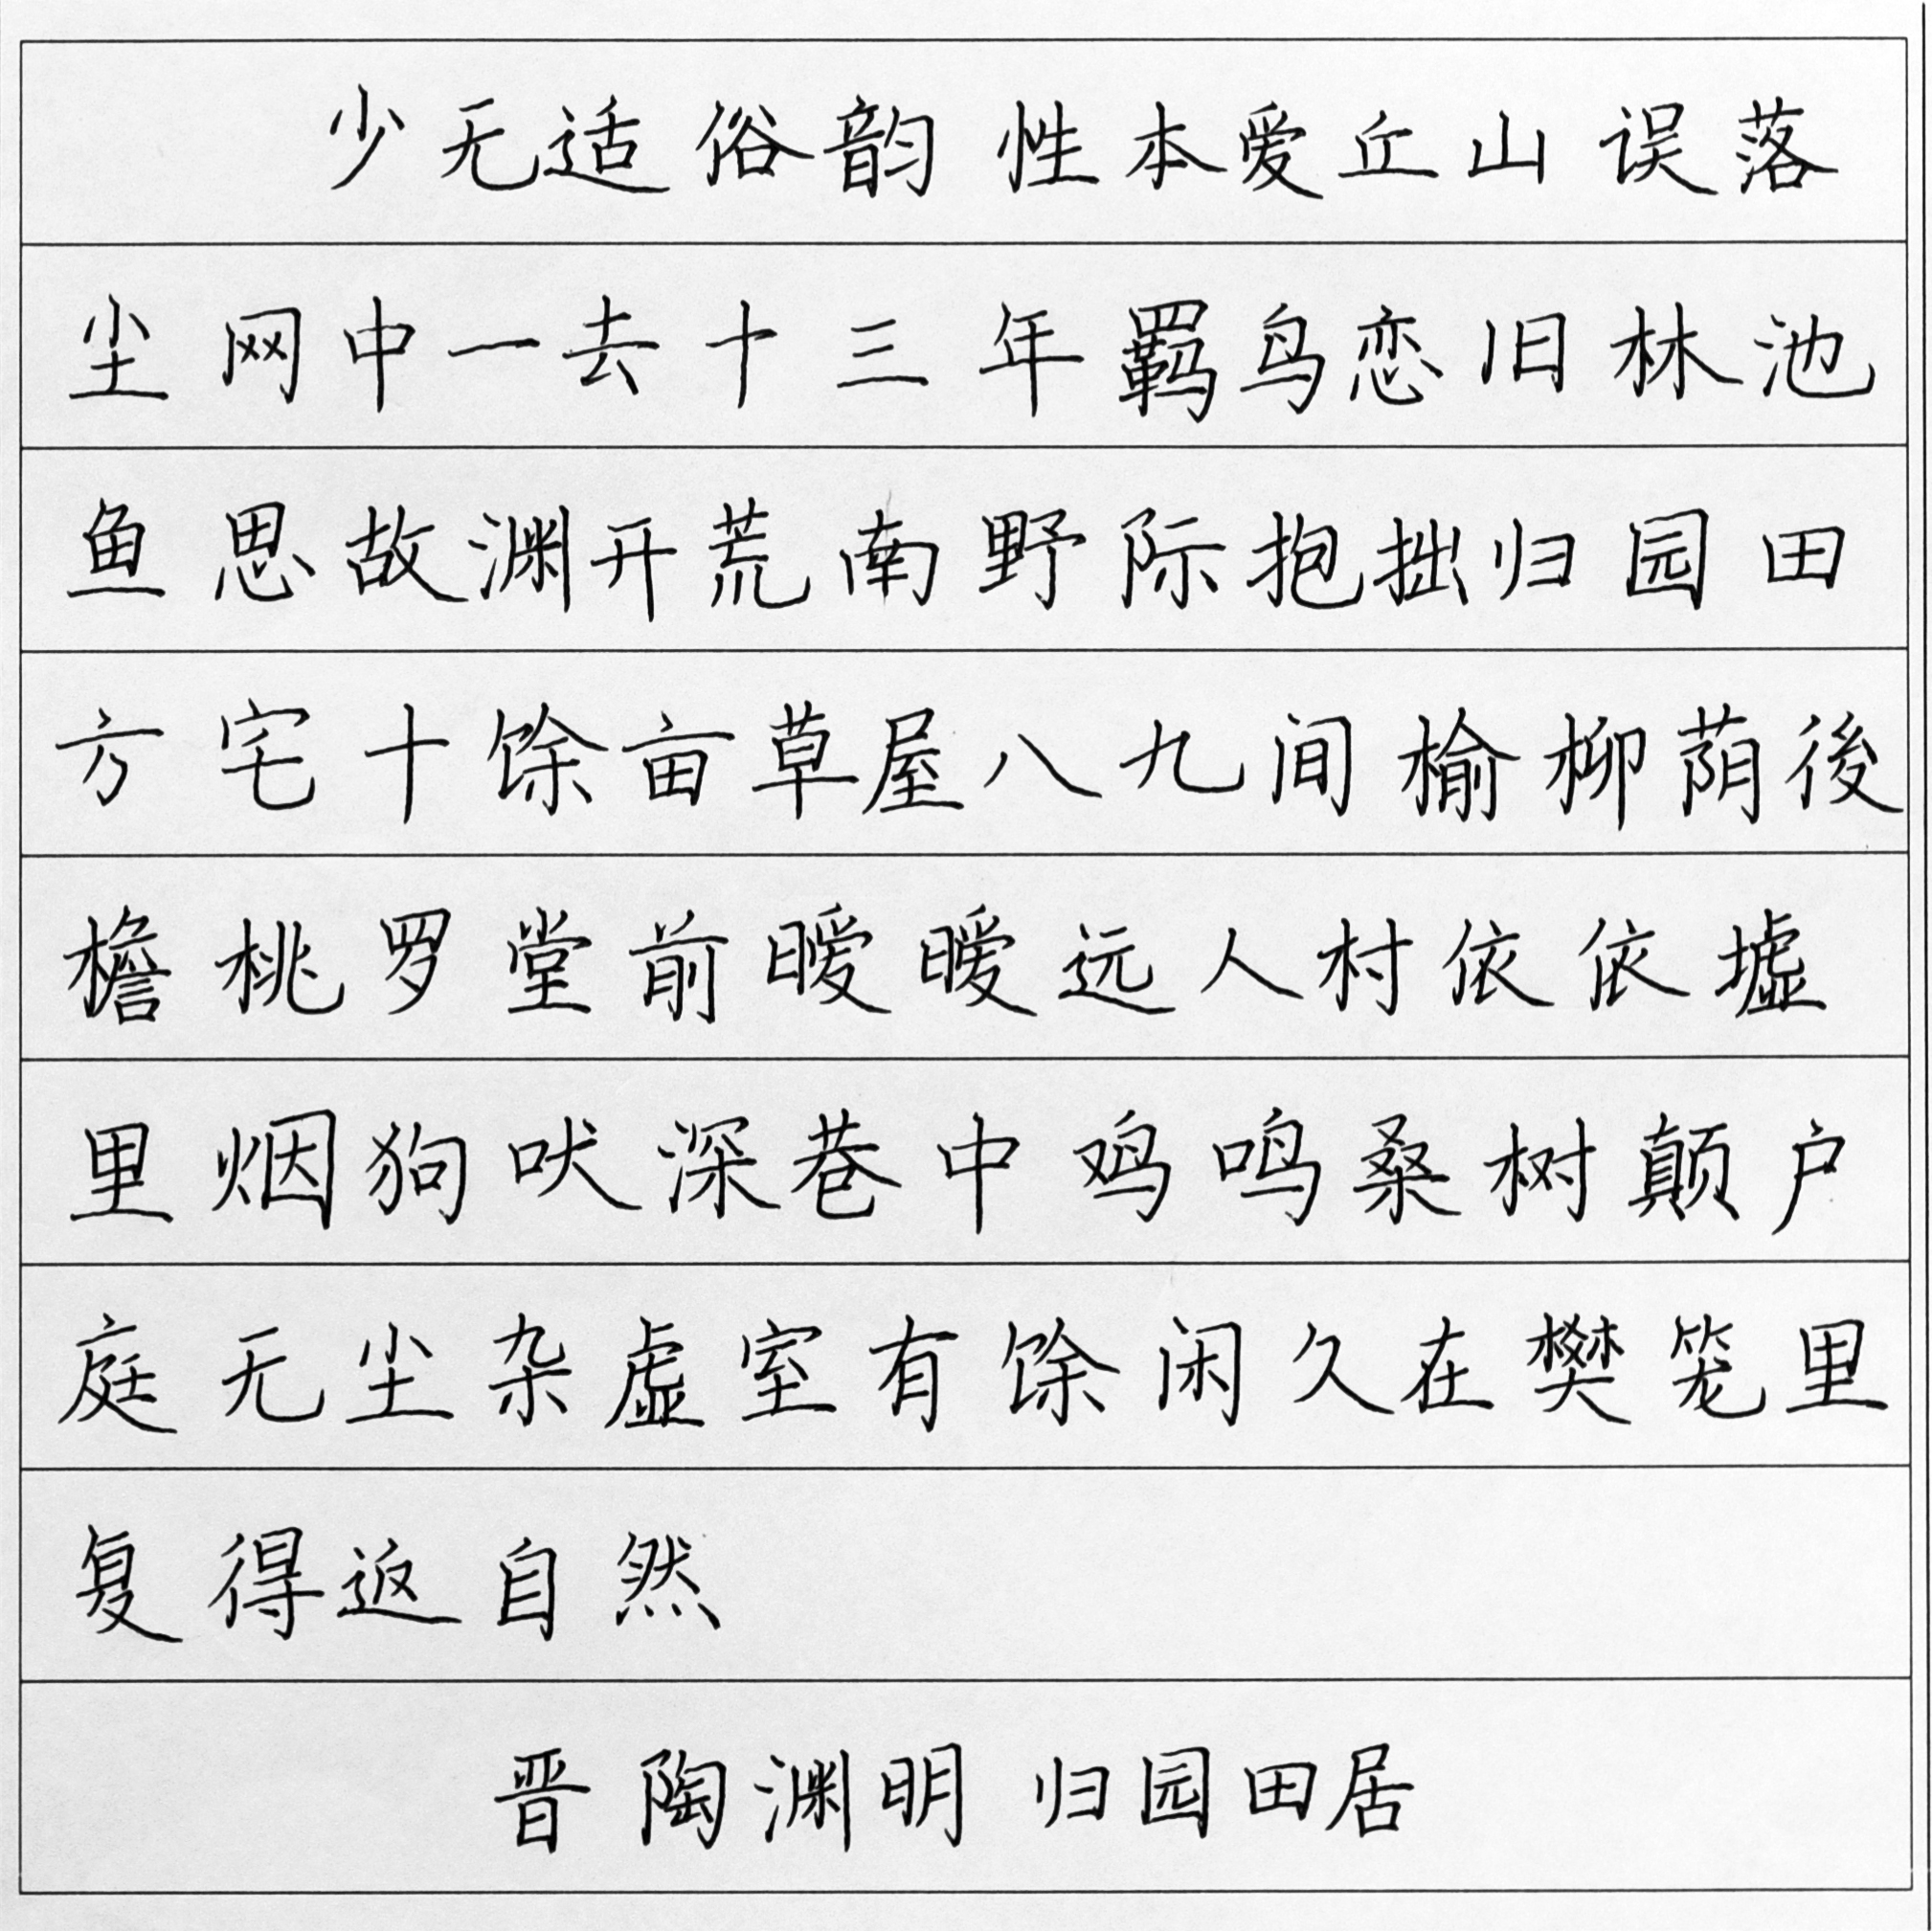 少无适俗韵性本爱丘山误落
尘网中一去十三年羁鸟恋旧林池
鱼思故渊开荒南野际抱拙归园田
方宅十馀亩草屋八九间榆柳荫後
檐桃罗堂前暧暧远人村依依墟
里烟狗吠深巷中鸡鸣桑树颠户
庭无尘杂虚室有馀闲久在樊笼里
复得返自然
晋陶渊明 归园田居